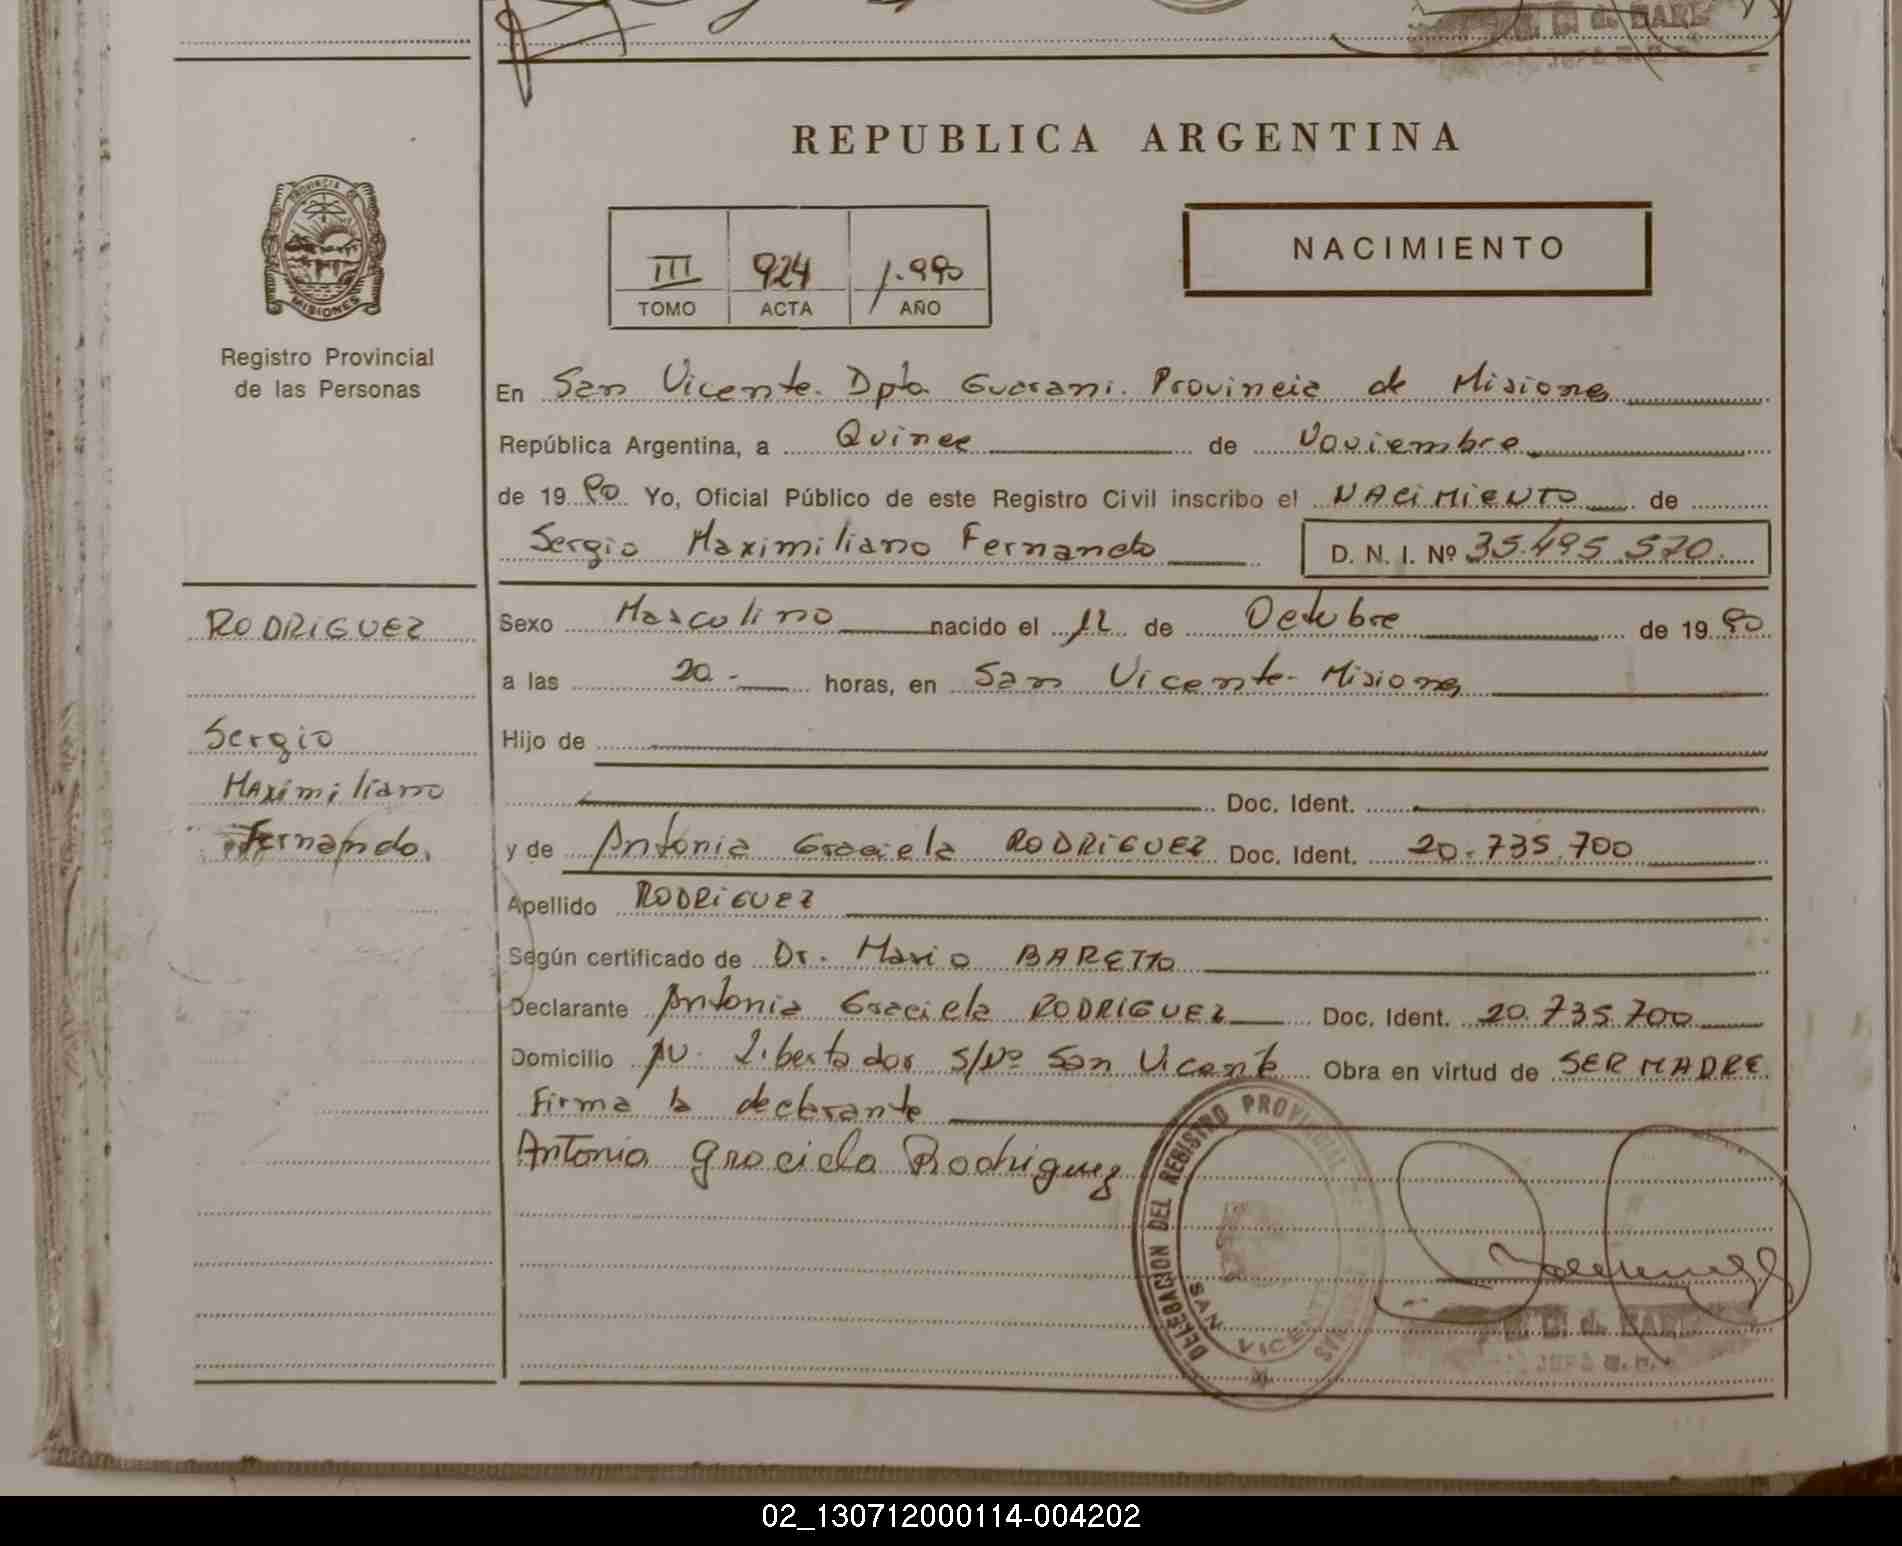 REPUBLICA ARGENTINA
PROVINCIA DE
MISIONES
Registro Provincial
de las Personas
III 924 1.990
TOMO ACTA AÑO
NACIMIENTO
En San Vicente. Dpto. Guarani. Provincia de Misiones
República Argentina, a Quince de Noviembre
de 19 90 Yo, Oficial Público de este Registro Civil inscribo el NACIMIENTO de
Sergio Maximiliano Fernando D. N. I. Nº 35.495.570.
RODRIGUEZ
Sergio
Maximiliano
Fernando.
Sexo Masculino nacido el 12 de Octubre de 19 90
a las 20.- horas, en San Vicente- Misiones
Hijo de
Doc. Ident.
y de Antonia Graciela RODRIGUEZ Doc. Ident. 20.735.700
Apellido RODRIGUEZ
Según certificado de Dr. Mario BARETTO
Declarante Antonia Graciela RODRIGUEZ Doc. Ident. 20.735.700
Domicilio AV. Libertador S/Nº San Vicente Obra en virtud de SER MADRE
Firma la declarante
Antonia Graciela Rodriguez
DELEGACION DEL REGISTRO PROVINCIAL
SAN VICENTE
02_130712000114-004202